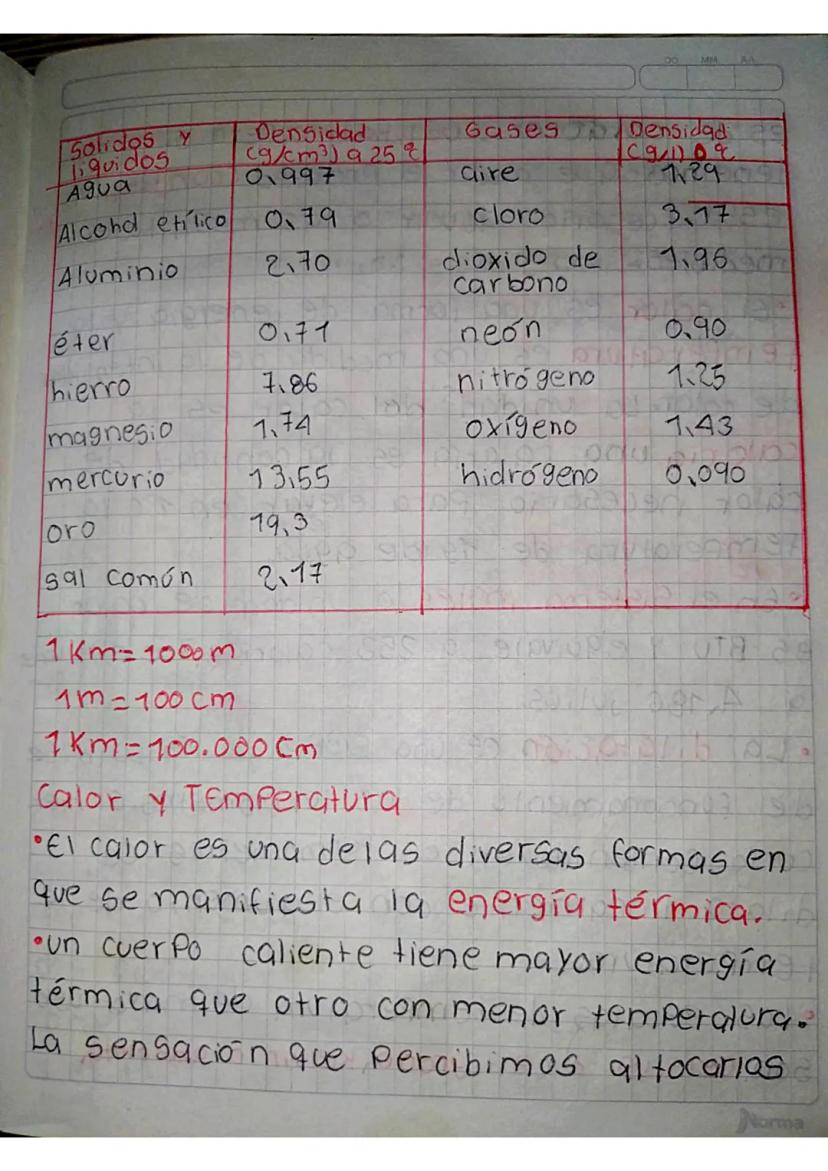 DD MM AA
Solidos y líquidos Densidad (g/cm³) a 25 ℃ Gases Densidad (g/l) 0 ℃
Agua 0,997 aire 1,29
Alcohol etílico 0,79 cloro 3,17
Aluminio 2,70 dioxido de carbono 1,96
éter 0,71 neón 0,90
hierro 7,86 nitrógeno 1,25
magnesio 1,74 oxígeno 1,43
mercurio 13,55 hidrógeno 0,090
oro 19,3
sal común 2,17
1 Km = 1000 m
1 m = 100 cm
1 Km = 100.000 Cm
Calor y TEmperatura
•El calor es una de las diversas formas en
que se manifiesta la energía térmica.
•un cuerpo caliente tiene mayor energía
térmica que otro con menor temperatura.
La sensación que percibimos al tocarlos
Norma